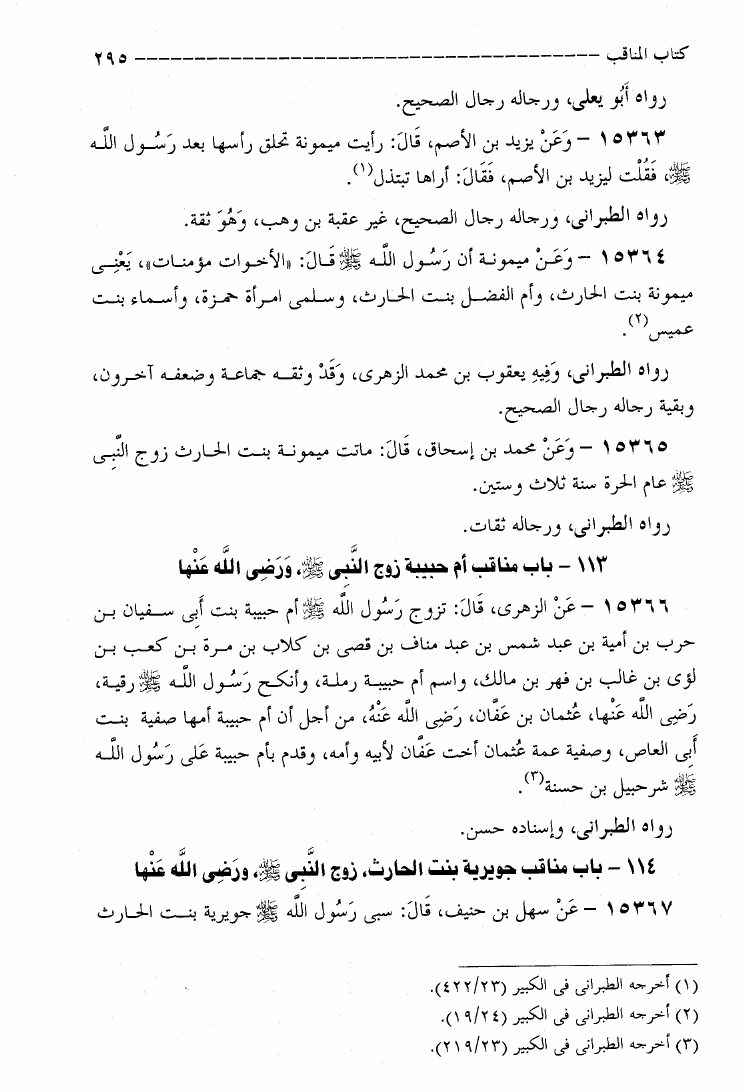 كتاب المناقب ----------------------------------------- ٢٩٥
رواه أَبُو يعلى، ورجاله رجال الصحيح.
١٥٣٦٣ – وَعَنْ يزيد بن الأصم، قَالَ: رأيت ميمونة تحلق رأسها بعد رَسُول اللَّه
ﷺ، فَقُلْت ليزيد بن الأصم، فَقَالَ: أراها تبتذل(١).
رواه الطبرانى، ورجاله رجال الصحيح، غير عقبة بن وهب، وَهُوَ ثقة.
١٥٣٦٤ – وَعَنْ ميمونة أن رَسُول اللَّه ﷺ قَالَ: «الأخوات مؤمنات»، يَعْنِى
ميمونة بنت الحارث، وأم الفضل بنت الحارث، وسلمى امرأة حمزة، وأسماء بنت
عميس(٢).
رواه الطبرانى، وَفِيهِ يعقوب بن محمد الزهرى، وَقَدْ وثقه جماعة وضعفه آخرون،
وبقية رجاله رجال الصحيح.
١٥٣٦٥ – وَعَنْ محمد بن إسحاق، قَالَ: ماتت ميمونة بنت الحارث زوج النَّبِى
ﷺ عام الحرة سنة ثلاث وستين.
رواه الطبرانى، ورجاله ثقات.
١١٣ – باب مناقب أم حبيبة زوج النَّبِى ﷺ، وَرَضِى اللَّه عَنْها
١٥٣٦٦ – عَنْ الزهرى، قَالَ: تزوج رَسُول اللَّه ﷺ أم حبيبة بنت أَبِى سفيان بن
حرب بن أمية بن عبد شمس بن عبد مناف بن قصى بن كلاب بن مرة بن كعب بن
لؤى بن غالب بن فهر بن مالك، واسم أم حبيبة رملة، وأنكح رَسُول اللَّه ﷺ رقية،
رَضِى اللَّه عَنْها، عُثمان بن عَفَّان، رَضِى اللَّه عَنْهُ، من أجل أن أم حبيبة أمها صفية بنت
أَبِى العاص، وصفية عمة عُثمان أخت عَفَّان لأبيه وأمه، وقدم بأم حبيبة عَلى رَسُول اللَّه
ﷺ شرحبيل بن حسنة(٣).
رواه الطبرانى، وإسناده حسن.
١١٤ – باب مناقب جويرية بنت الحارث، زوج النَّبِى ﷺ، ورَضِى اللَّه عَنْها
١٥٣٦٧ – عَنْ سهل بن حنيف، قَالَ: سبى رَسُول اللَّه ﷺ جويرية بنت الحارث
(١) أخرجه الطبرانى فى الكبير (٤٢٢/٢٣).
(٢) أخرجه الطبرانى فى الكبير (١٩/٢٤).
(٣) أخرجه الطبرانى فى الكبير (٢١٩/٢٣).